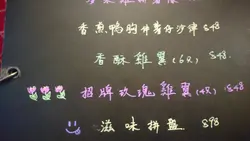 香煎鴨胸伴薯仔沙律 $48
香酥雞翼（6只） $48
招牌玫瑰雞翼（4只） $48
滋味拼盤 $98